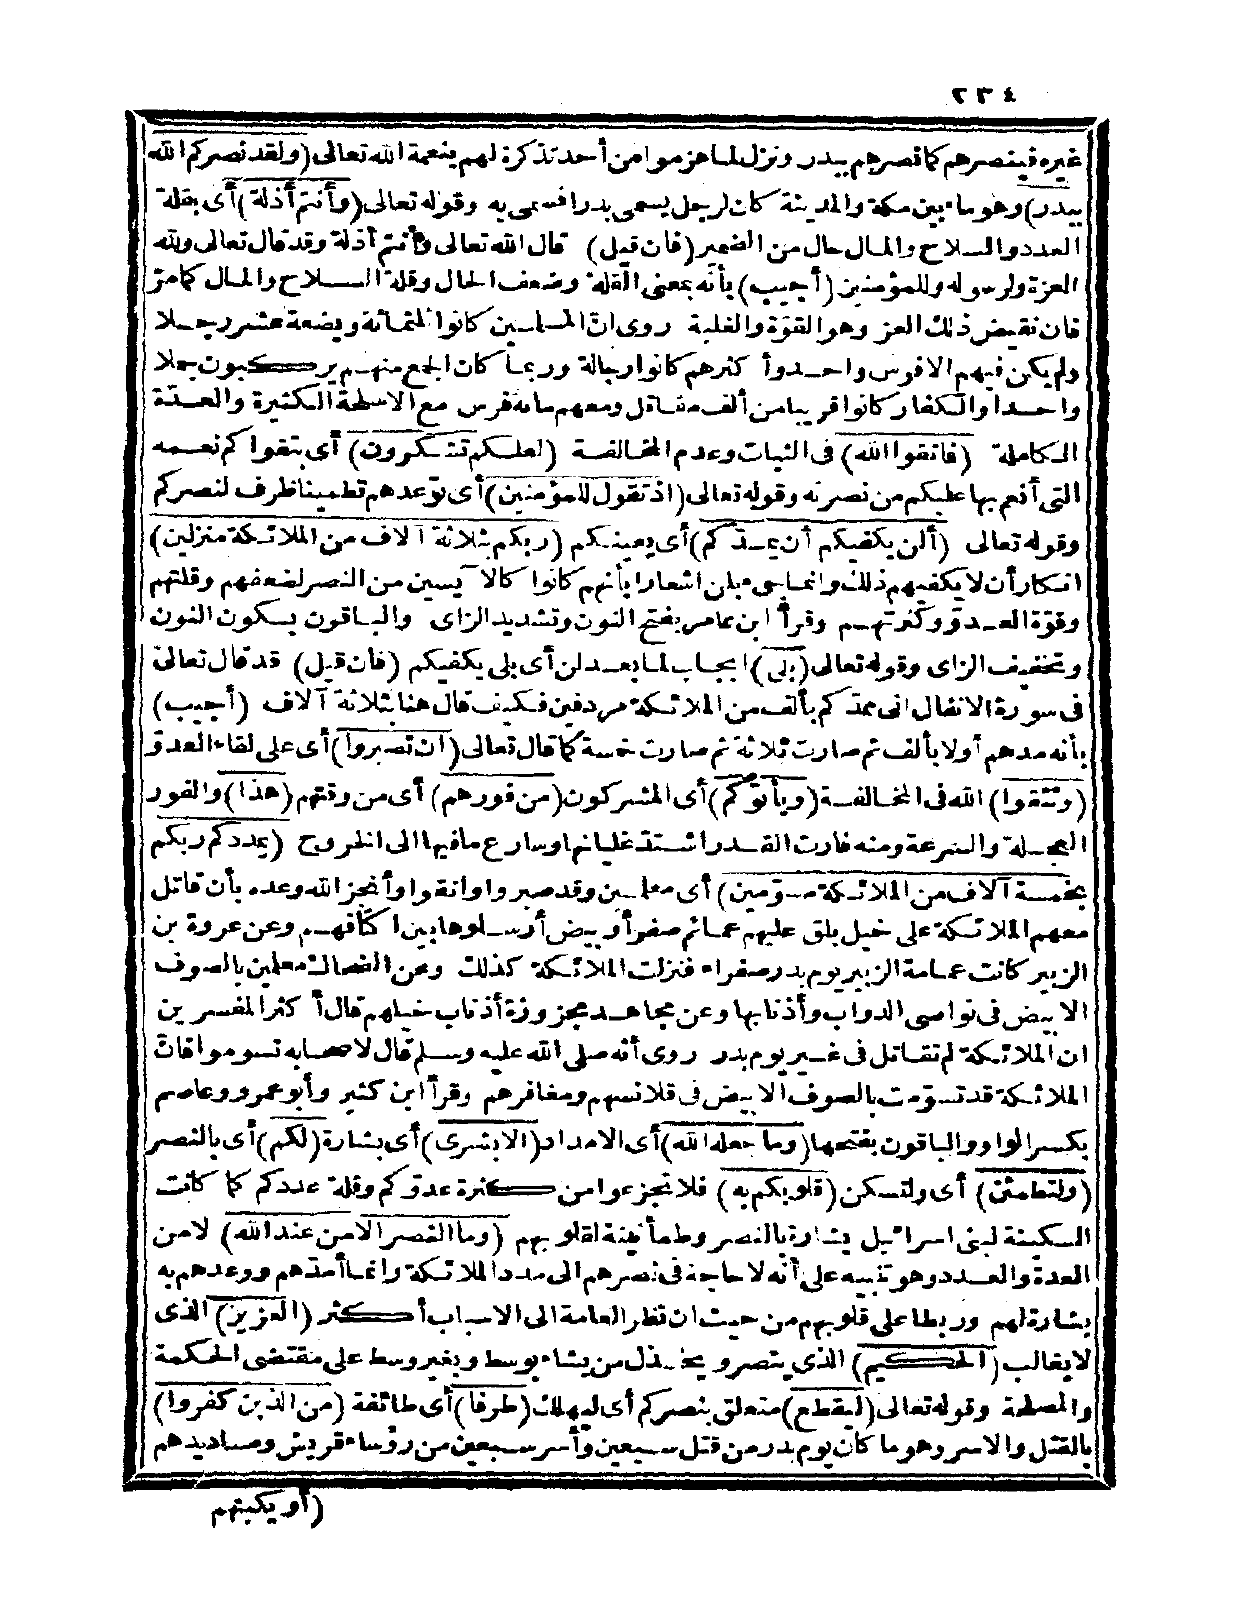 ٢٣٤
غيره فينصرهم كما نصرهم ببدر ونزل لما هزموا من أحد تذكرة لهم بنعمة الله تعالى (ولقد نصركم الله
ببدر) وهو ماء بين مكة والمدينة كان لرجل يسمى بدرا فسمى به وقوله تعالى (وأنتم أذلة) أى بقلة
العدد والسلاح والمال حال من الضمير (فان قيل) قال الله تعالى وأنتم أذلة وقد قال تعالى ولله
العزة ولرسوله وللمؤمنين (أجيب) بأنه بمعنى القلة وضعف الحال وقلة السلاح والمال كما مرّ
فان نقيض ذلك العز وهو القوّة والغلبة روى انّ المسلمين كانوا ثلثمائة وبضعة عشر رجلا
ولم يكن فيهم الا فرس واحد وأكثرهم كانوا رجالة وربما كان الجمع منهم يركبون جملا
واحدا والكفار كانوا قريبا من ألف مقاتل ومعهم مائة فرس مع الاسلحة الكثيرة والعدّة
الكاملة (فاتقوا الله) فى الثبات وعدم المخالفة (لعلكم تشكرون) أى بتقواكم نعمه
التى أنعم بها عليكم من نصرته وقوله تعالى (اذ تقول للمؤمنين) أى توعدهم تطمينا ظرف لنصركم
وقوله تعالى (ألن يكفيكم أن يمدّكم) أى يعينكم (ربكم بثلاثة آلاف من الملائكة منزلين)
انكار أن لا يكفيهم ذلك وانما جىء بلن اشعارا بأنهم كانوا كالآيسين من النصر لضعفهم وقلتهم
وقوّة العدوّ وكثرتهم وقرأ ابن عامر بفتح النون وتشديد الزاى والباقون بسكون النون
وتخفيف الزاى وقوله تعالى (بلى) ايجاب لما بعد لن أى بلى يكفيكم (فان قيل) قد قال تعالى
فى سورة الانفال انى ممدّكم بألف من الملائكة مردفين فكيف قال هنا بثلاثة آلاف (أجيب)
بأنه مدهم أولا بألف ثم صارت ثلاثة ثم صارت خمسة كما قال تعالى (ان تصبروا) أى على لقاء العدوّ
(وتتقوا) الله فى المخالفة (ويأتوكم) أى المشركون (من فورهم) أى من وقتهم (هذا) والفور
العجلة والسرعة ومنه فارت القدر اشتدّ غليانها وسارع ما فيها الى الخروج (يمددكم ربكم
بخمسة آلاف من الملائكة مسوّمين) أى معلمين وقد صبروا واتقوا وأنجز الله وعده بأن قاتل
معهم الملائكة على خيل بلق عليهم عمائم صفر أو بيض أرسلوها بين اكتافهم وعن عروة بن
الزبير كانت عمامة الزبير يوم بدر صفراء فنزلت الملائكة كذلك وعن الضحاك معلمين بالصوف
الابيض فى نواصى الدواب وأذنابها وعن مجاهد مجزوزة أذناب خيلهم قال أكثر المفسرين
ان الملائكة لم تقاتل فى غير يوم بدر روى أنه صلى الله عليه وسلم قال لاصحابه تسوموا فانّ
الملائكة قد تسوّمت بالصوف الابيض فى قلانسهم ومغافرهم وقرأ ابن كثير وأبو عمرو وعاصم
بكسر الواو والباقون بفتحها (وما جعله الله) أى الامداد (الا بشرى) أى بشارة (لكم) أى بالنصر
(ولتطمئنّ) أى ولتسكن (قلوبكم به) فلا تجزعوا من كثرة عدوّكم وقلة عددكم كما كانت
السكينة لبنى اسرائيل بشارة بالنصر وطمأنينة لقلوبهم (وما النصر الا من عند الله) لا من
العدّة والعدد وهو تنبيه على أنه لا حاجة فى نصرهم الى مدد الملائكة وانما أمدّهم ووعدهم به
بشارة لهم وربطا على قلوبهم من حيث ان نظر العامة الى الاسباب أكثر (العزيز) الذى
لا يغالب (الحكيم) الذى ينصر ويخذل من يشاء بوسط وبغير وسط على مقتضى الحكمة
والمصلحة وقوله تعالى (ليقطع) متعلق بنصركم أى ليهلك (طرفا) أى طائفة (من الذين كفروا)
بالقتل والاسر وهو ما كان يوم بدر من قتل سبعين وأسر سبعين من رؤساء قريش وصناديدهم
(أو يكبتهم